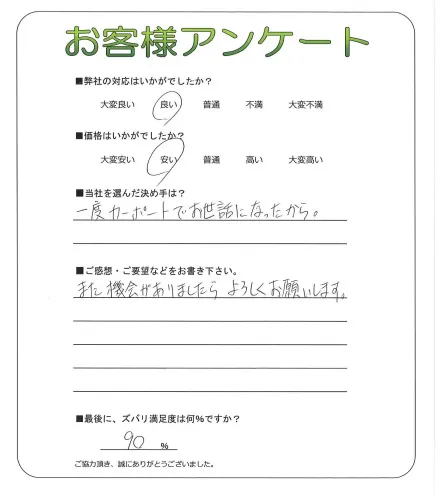 お客様アンケート
■弊社の対応はいかがでしたか?
大変良い 良い 普通 不満 大変不満
■価格はいかがでしたか?
大変安い 安い 普通 高い 大変高い
■当社を選んだ決め手は?
一度カーポートでお世話になったから。
■ご感想・ご要望などをお書き下さい。
また機会がありましたら よろしくお願いします。
■最後に、ズバリ満足度は何%ですか?
90 %
ご協力頂き、誠にありがとうございました。